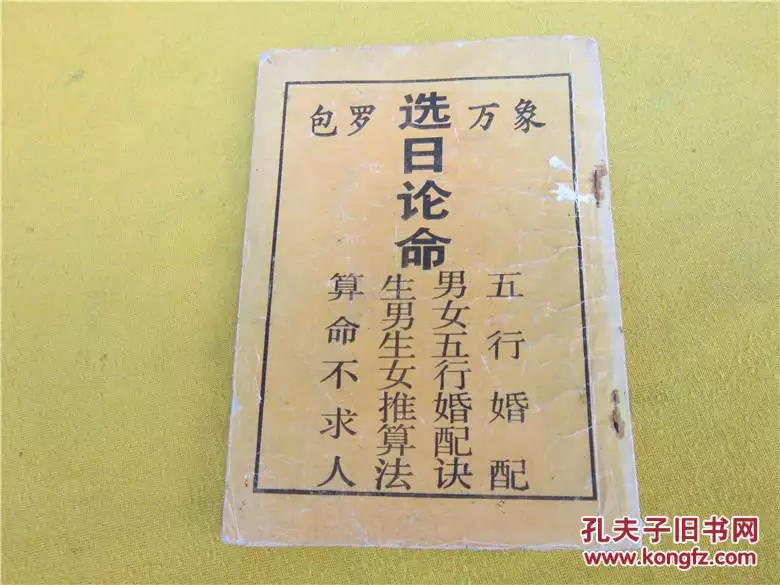 包罗万象
选日论命
五行婚配
男女五行婚配诀
生男生女推算法
算命不求人
孔夫子旧书网
www.kongfz.com